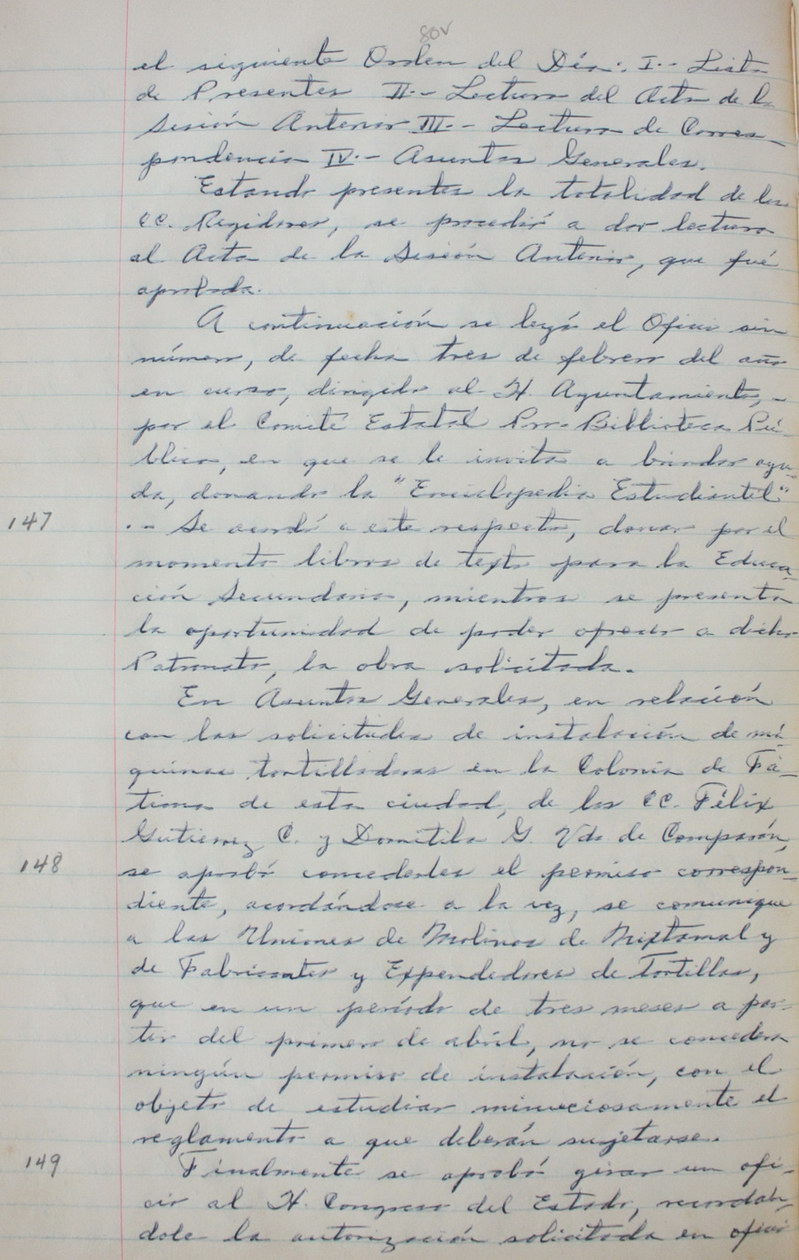 80v
el siguiente Orden del Día: I.- Lista
de Presentes II.- Lectura del Acta de la
Sesión Anterior III.- Lectura de Corres-
pondencia IV.- Asuntos Generales.
Estando presentes la totalidad de los
CC. Regidores, se procedió a dar lectura
al Acta de la Sesión Anterior, que fué
aprobada.
A continuación se leyó el Oficio sin
número, de fecha tres de febrero del año
en curso, dirigido al H. Ayuntamiento, -
por el Comité Estatal Pro-Biblioteca Pú-
blica, en que se le invita a brindar ayu-
da, donando la "Enciclopedia Estudiantil"
147 .- Se acordó a este respecto, donar por el
momento libros de texto para la Educa-
ción Secundaria, mientras se presenta
la oportunidad de poder ofrecer a dicho
Patronato, la obra solicitada.
En Asuntos Generales, en relación
con las solicitudes de instalación de má
quinas tortilladoras en la Colonia de Fá-
tima de esta ciudad, de los CC. Félix
Gutierrez C. y Domitila G. Vda de Comparán,
148 se aprobó concederles el permiso correspon-
diente, acordándose a la vez, se comunique
a las Uniones de Molinos de Nixtamal y
de Fabricantes y Expendedores de Tortillas,
que en un período de tres meses a par-
tir del primero de abril, no se concederá
ningún permiso de instalación, con el
objeto de estudiar minuciosamente el
reglamento a que deberán sujetarse.
149 Finalmente se aprobó girar un ofi-
cio al H. Congreso del Estado, recordán-
dole la autorización solicitada en oficio